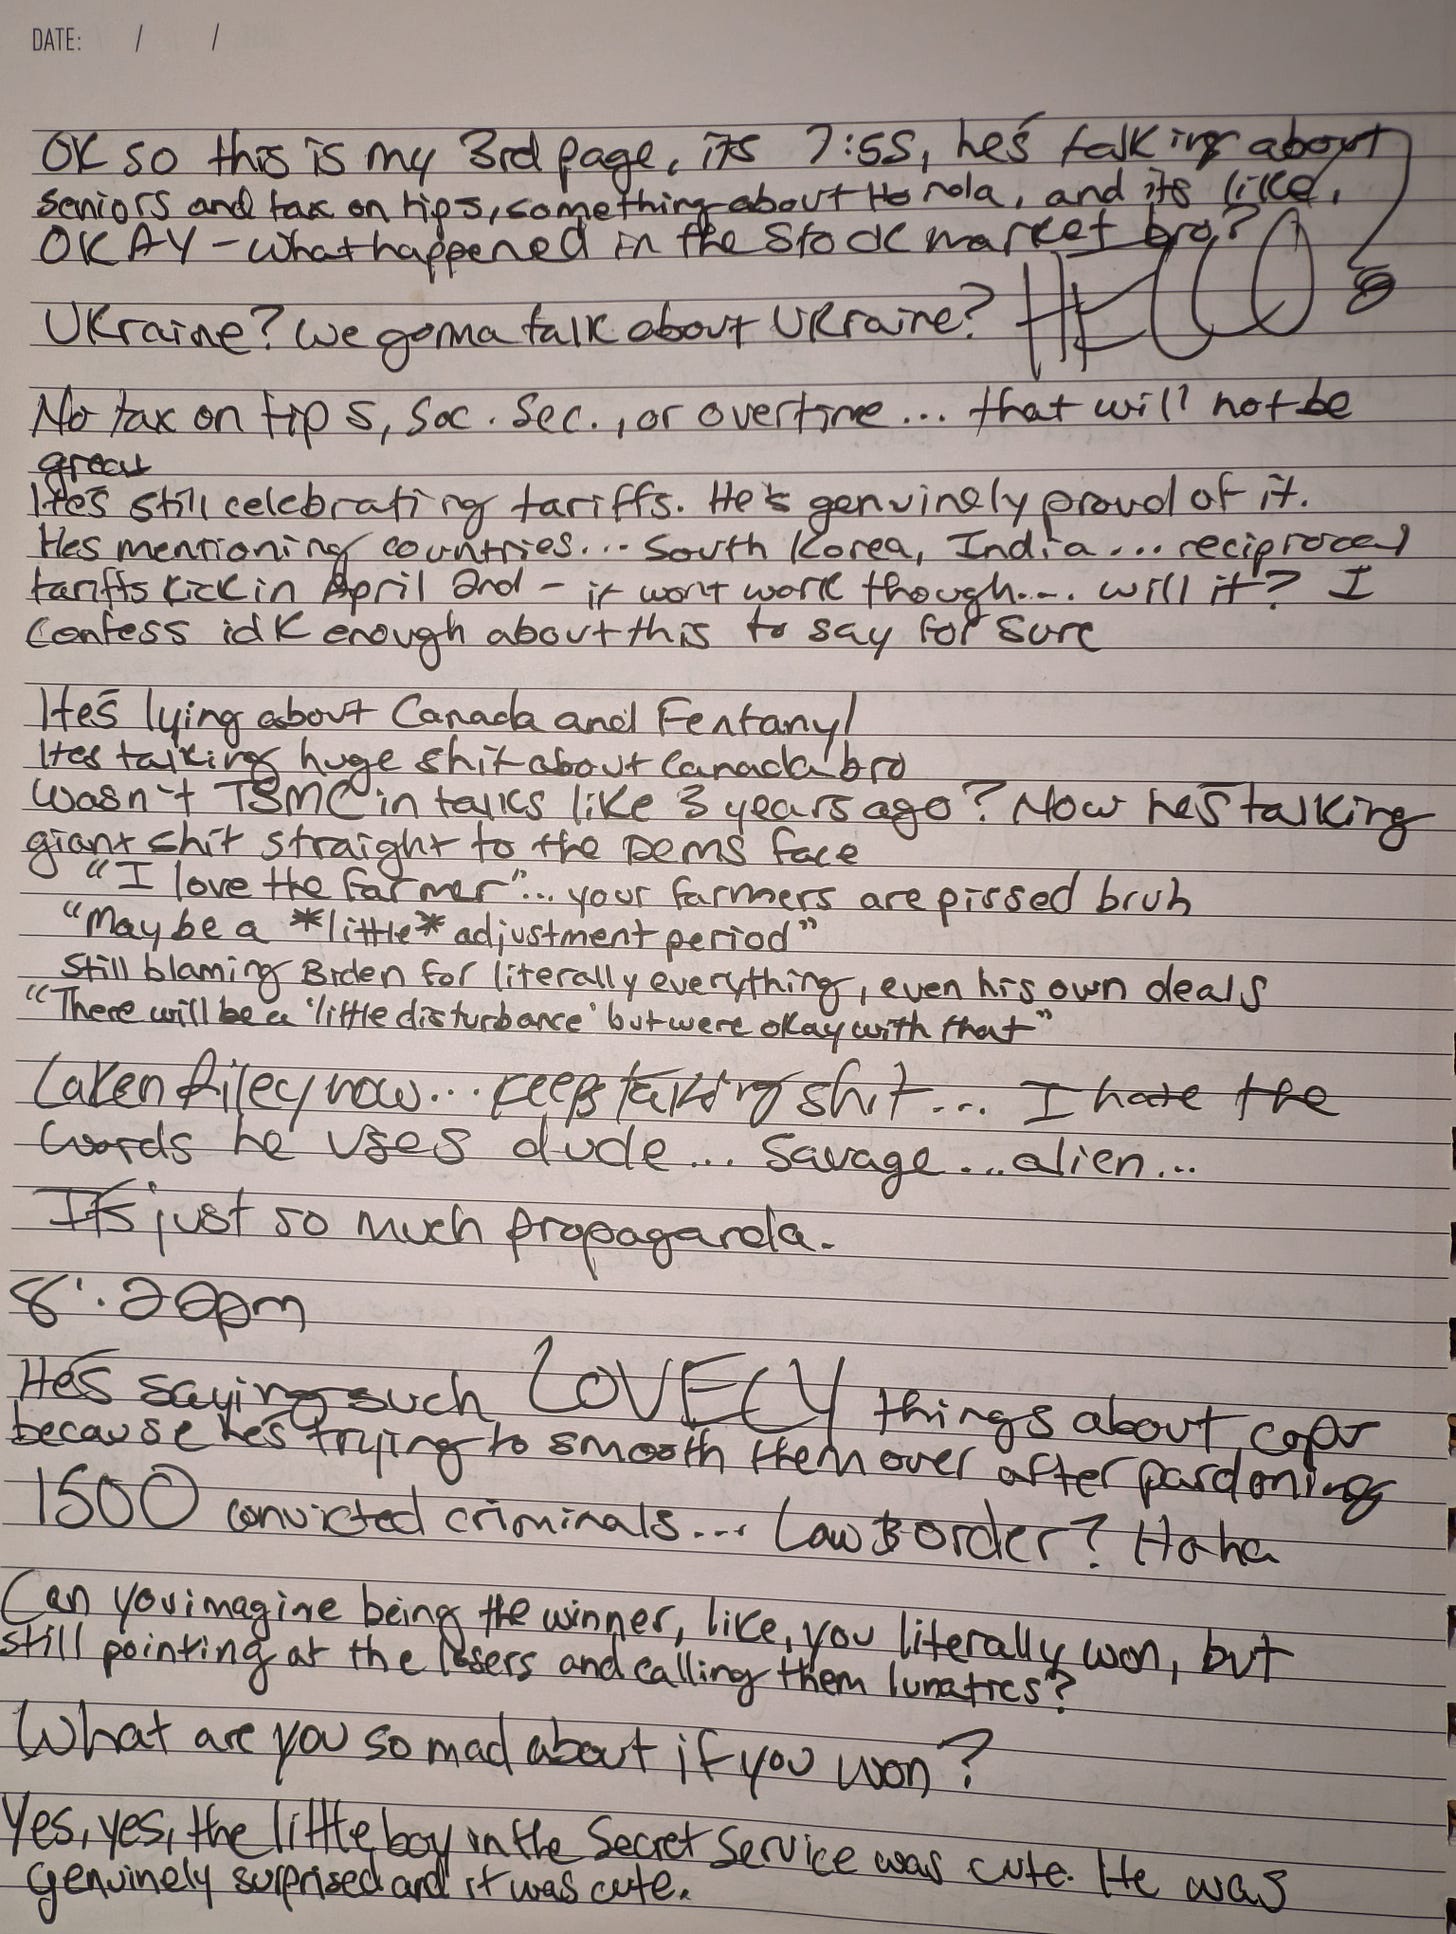 DATE: / /
OK so this is my 3rd page, its 7:55, he's talking about
seniors and tax on tips, something about Honola, and its like,
OKAY - what happened in the stock market bro?
Ukraine? We gonna talk about Ukraine? HELLO
No tax on tips, Soc. Sec., or overtime... that will not be
great
He's still celebrating tariffs. He's genuinely proud of it.
Hes mentioning countries... South Korea, India... reciprocal
tariffs kick in April 2nd - it wont work though.... will it? I
confess idk enough about this to say for sure
He's lying about Canada and Fentanyl
Hes talking huge shit about Canada bro
Wasn't TSMC in talks like 3 years ago? Now he's talking
giant shit straight to the Dems face
"I love the farmer"... your farmers are pissed bruh
"Maybe a *little* adjustment period"
Still blaming Biden for literally everything, even his own deals
"There will be a 'little disturbance' but were okay with that"
Laken Riley now... keeps talking shit... I hate the
words he uses dude... savage... alien...
It's just so much propaganda.
8:20pm
He's saying such LOVELY things about cops
because he's trying to smooth them over after pardoning
1500 convicted criminals... Law & Order? Haha
Can you imagine being the winner, like, you literally won, but
still pointing at the losers and calling them lunatics?
What are you so mad about if you won?
Yes, yes, the little boy in the Secret Service was cute. He was
genuinely surprised and it was cute.